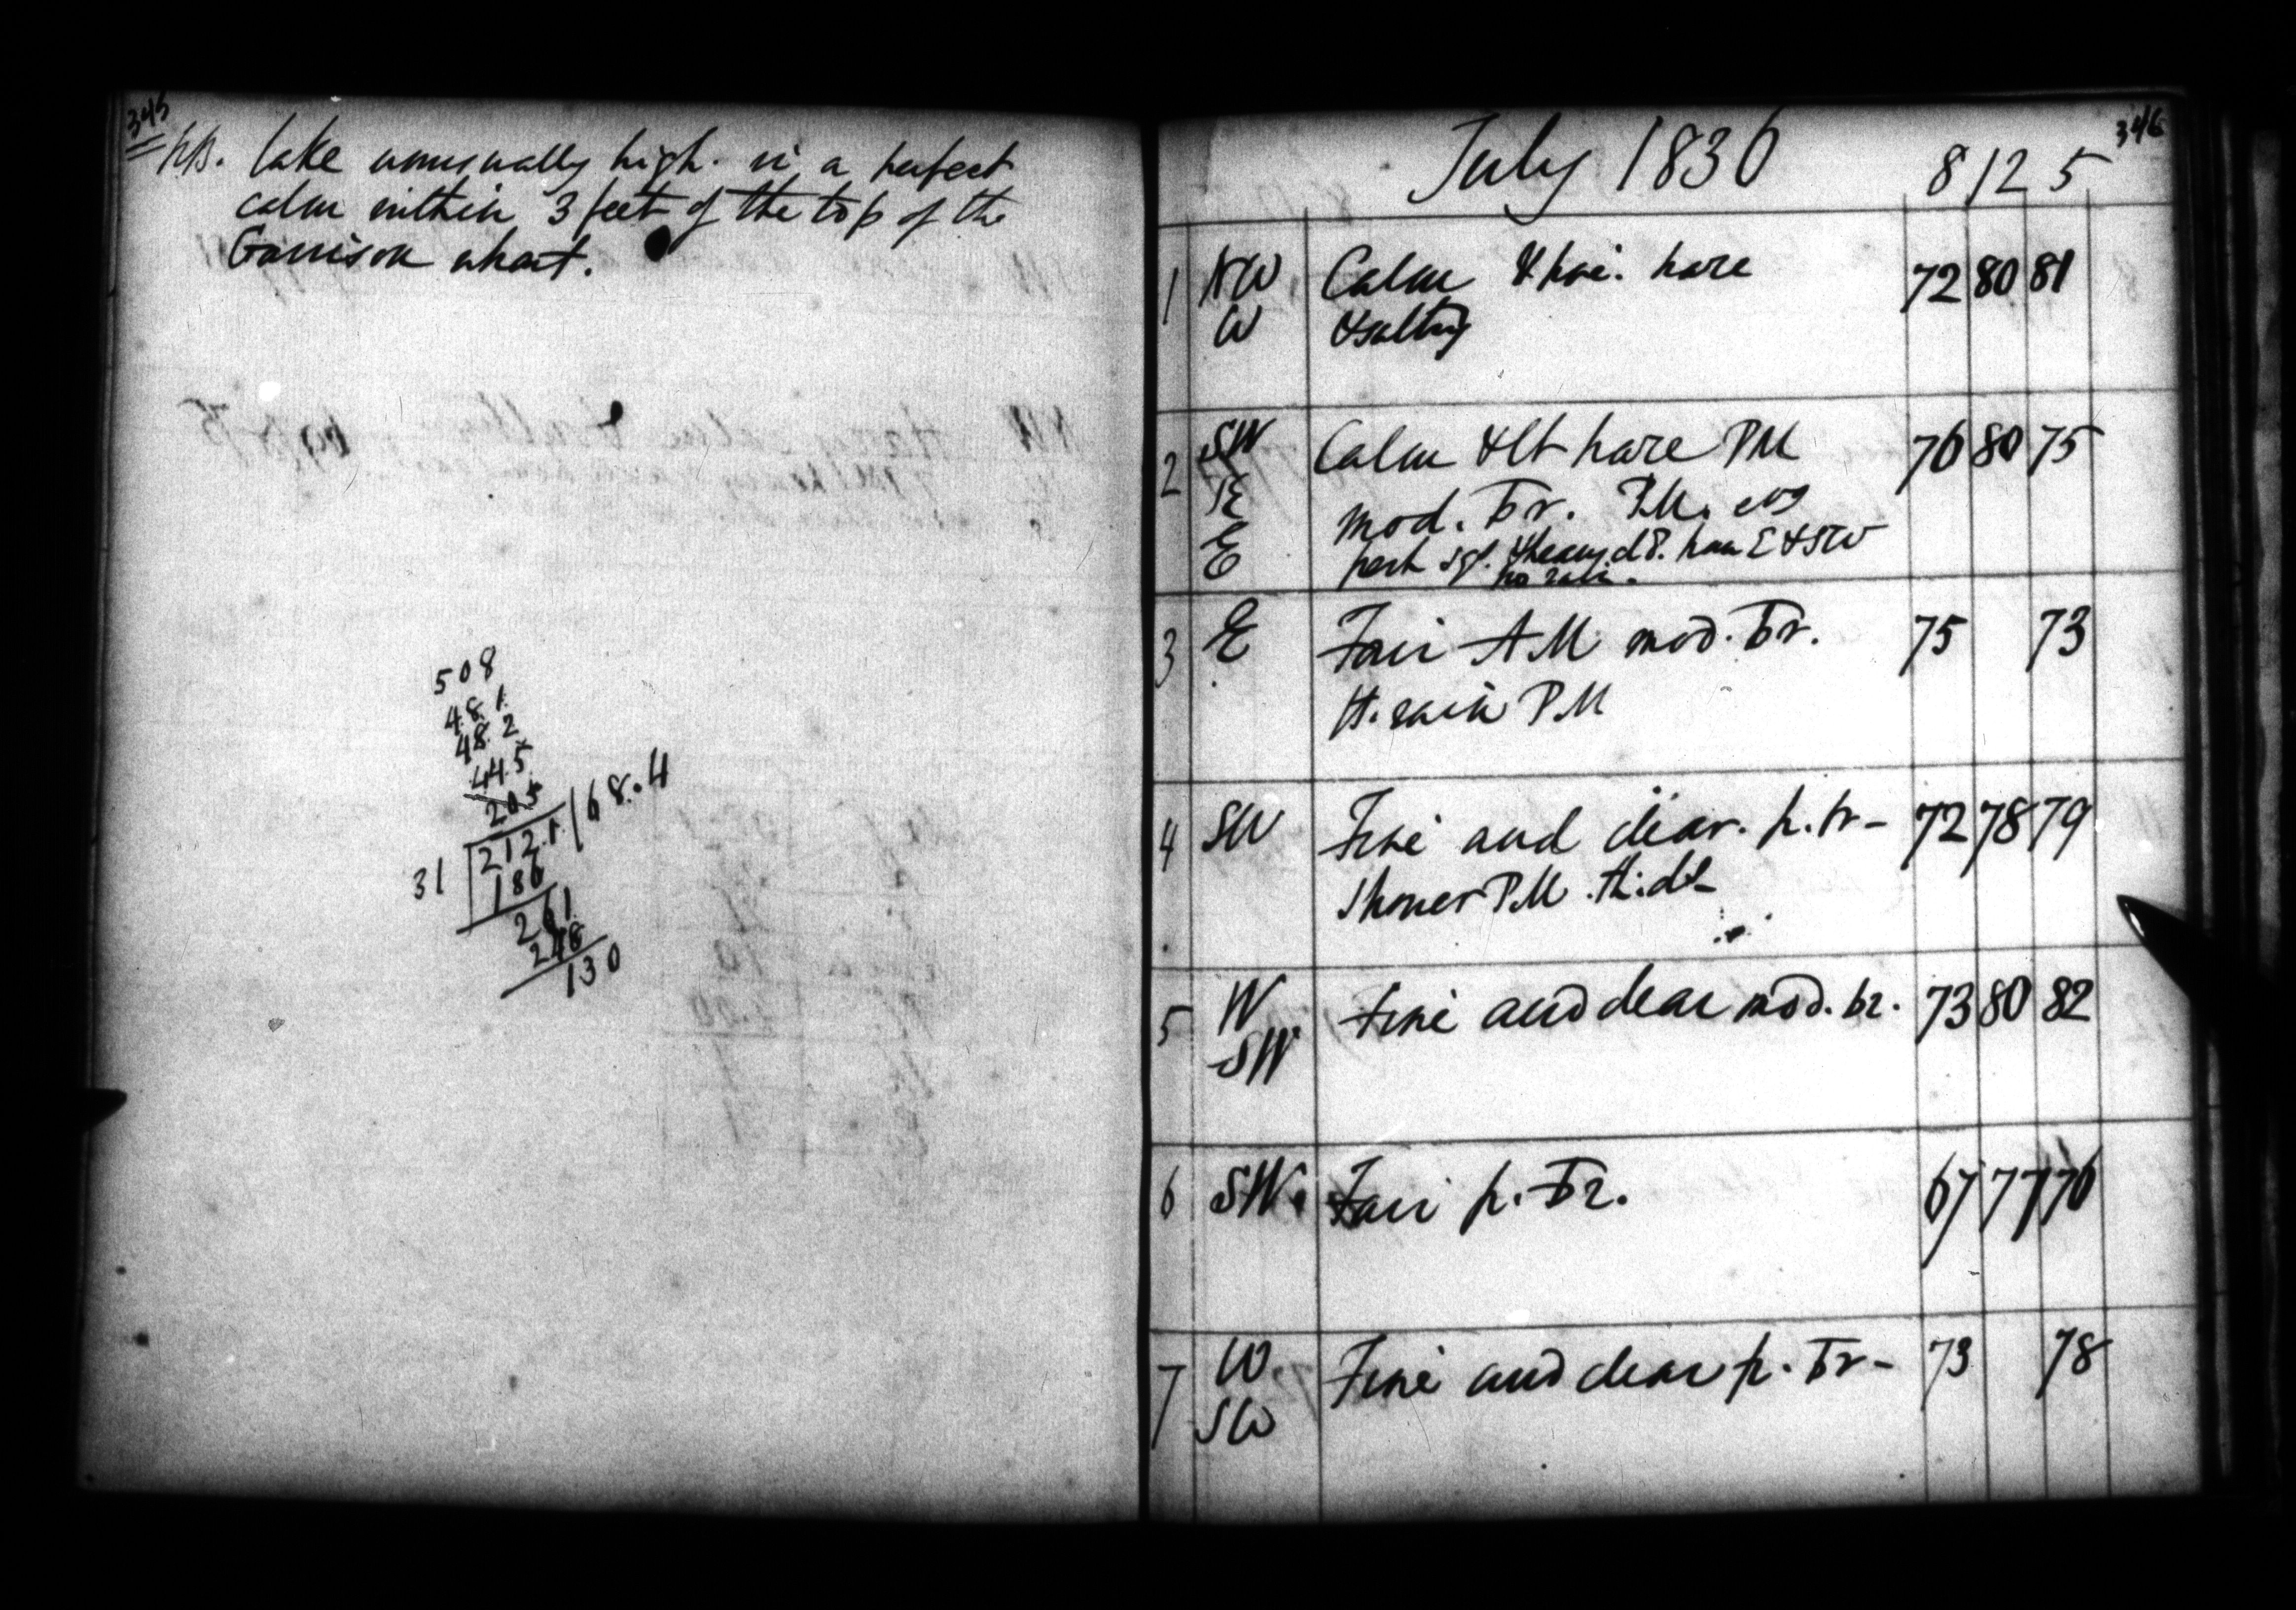 345
NB. Lake unusually high. in a perfect
calm within 3 feet of the top of the
Garrison wharf.
508
48.1
48.2
44.5
205
31 212.1 68.4
186
261
248
130
346
July 1836 8 12 5
1 NW Calm & fine. haze 72 80 81
W & sultry
2 SW Calm & lt haze PM 76 80 75
E mod. br. PM. evg
E sql. & heavy E & SW
no rain.
3 E Fair AM mod. br. 75 73
lt. rain PM
4 SW Fine and clear. p. br- 72 78 79
Shower PM. th:
5 W Fine and clear mod. br. 73 80 82
SW
6 SW. Fair p. br. 67 77 76
7 W. Fine and clear p. br- 73 78
SW